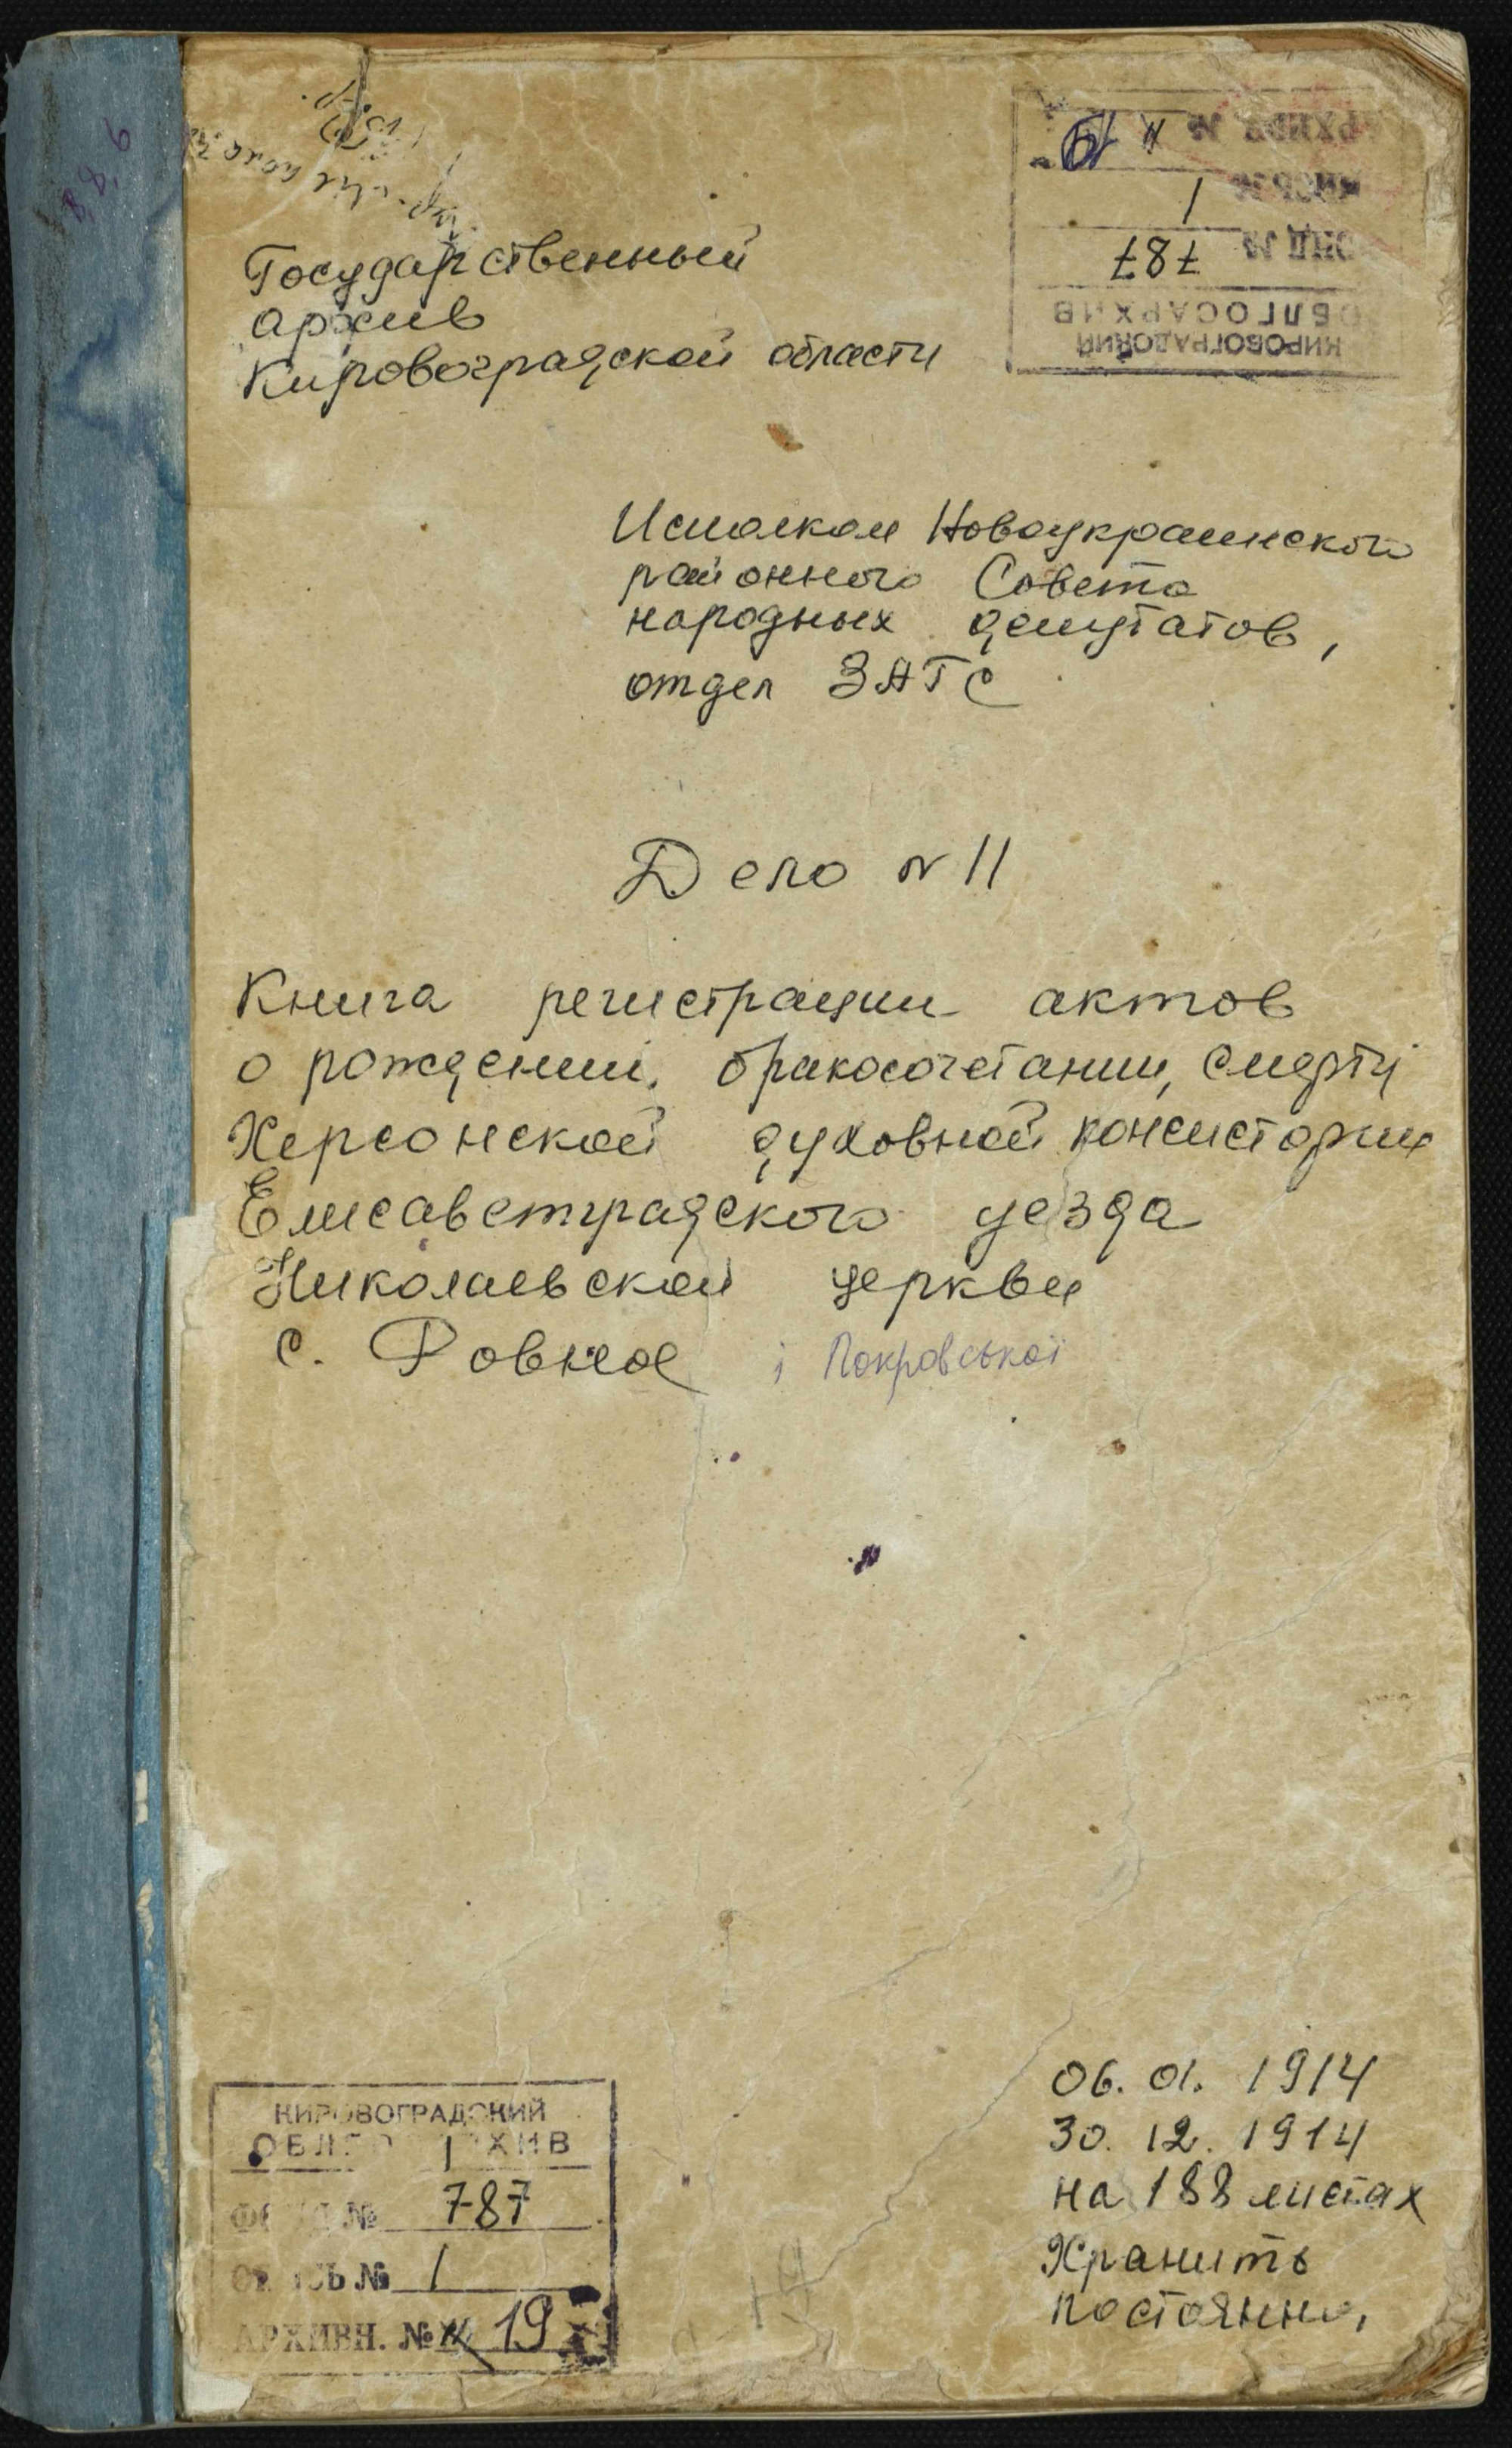 Государственный
архив
Кировоградской области
КИРОВОГРАДСКИЙ
ОБЛГОСАРХИВ
ФОНД № 787
ОПИСЬ № 1
АРХИВН №
Исполком Новоукраинского
районного Совета
народных депутатов,
отдел ЗАГС
Дело N 11
Книга регистрации актов
о рождении, бракосочетании, смерти
Херсонской духовной консистории
Елисаветградского уезда
Николаевской церкви
с. Ровное і Покровської
06. 01. 1914
30. 12. 1914
на 188 листах
Хранить
постоянно,
КИРОВОГРАДСКИЙ
ОБЛГОСАРХИВ
ФОНД № 787
ОПИСЬ № 1
АРХИВН. № 19